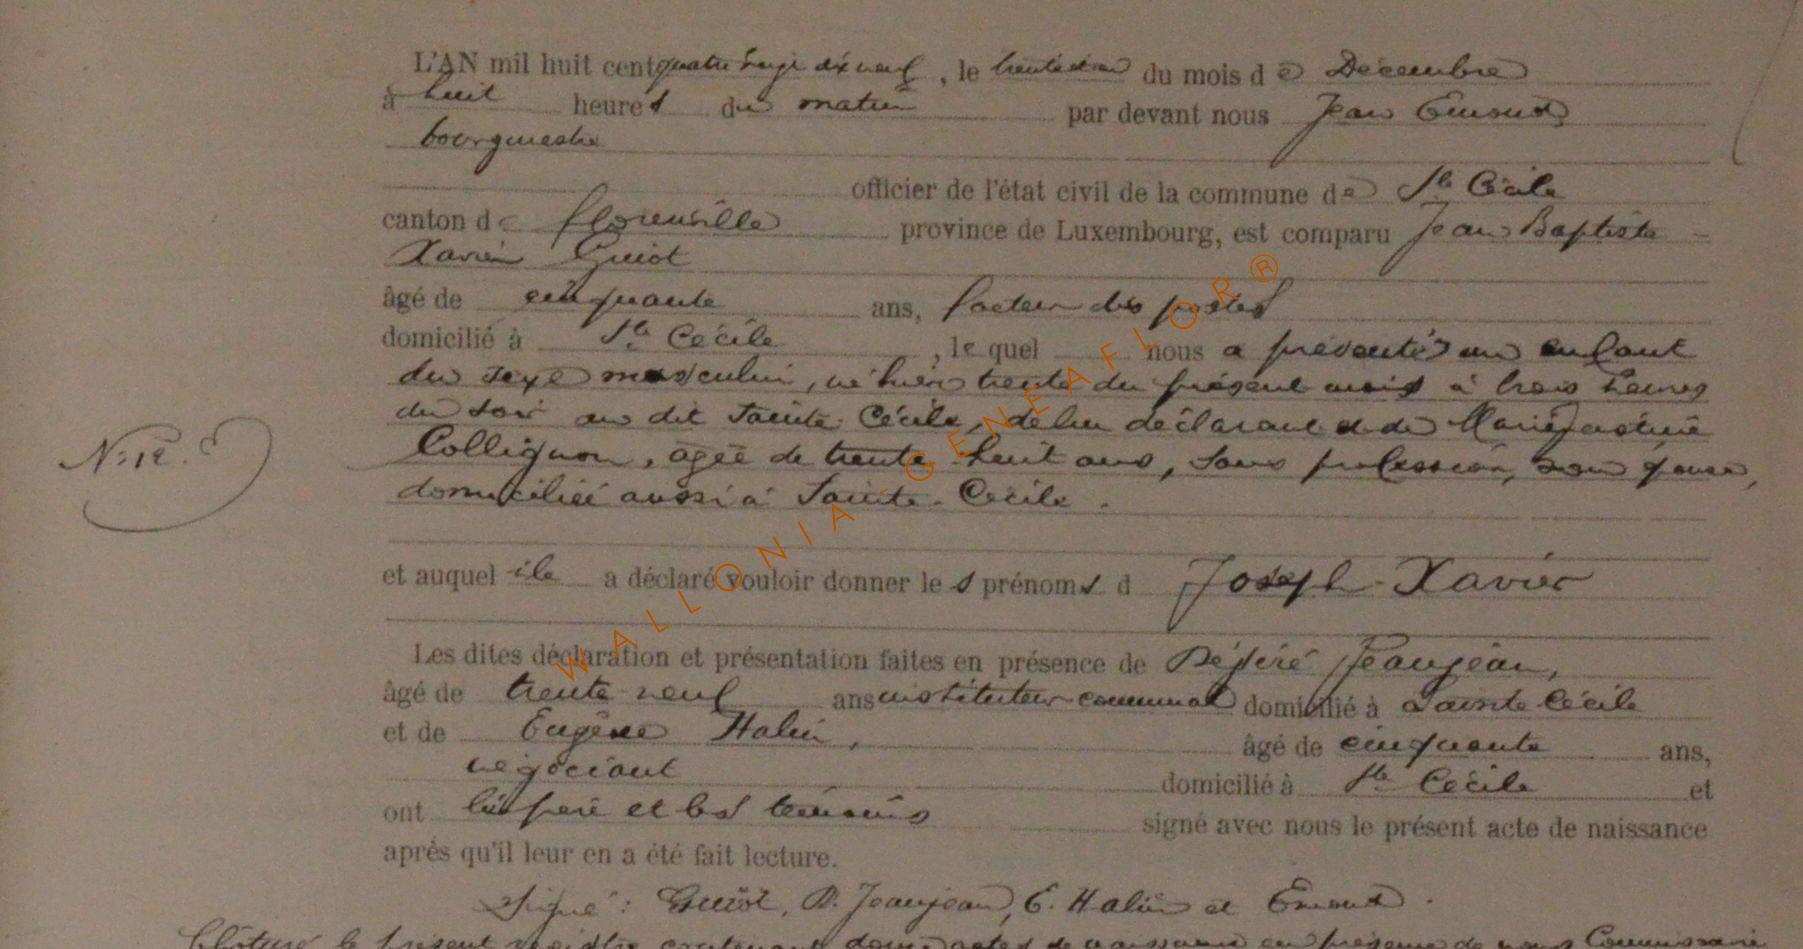 L'AN mil huit cent quatre vingt dix neuf, le trente et un du mois de Décembre
à huit heures du matin par devant nous Jean Emond
bourgmestre
officier de l'état civil de la commune de Ste Cécile
canton de Florenville province de Luxembourg, est comparu Jean Baptiste
Xavier Guiot
âgé de cinquante ans, facteur des postes
domicilié à Ste Cécile, le quel nous a présenté un enfant
du sexe masculin, né hier trente du présent mois à trois heures
du soir au dit Sainte-Cécile, de lui déclarant et de Marie
Collignon, agée de trente-huit ans, sans profession, son épouse,
domiciliée aussi à Sainte-Cécile.
N: 12.
et auquel il a déclaré vouloir donner les prénoms d Joseph-Xavier
Les dites déclaration et présentation faites en présence de Désiré Jeanjean,
âgé de trente-neuf ans instituteur communal domicilié à Sainte-Cécile
et de Eugène Halin, âgé de cinquante ans,
négociant domicilié à Ste Cécile et
ont le père et les témoins signé avec nous le présent acte de naissance
après qu'il leur en a été fait lecture.
Signé: Guiot, D. Jeanjean, E. Halin et Emond.
Clôturé le présent registre contenant douze actes de naissance en présence de nous Commissaire
WALLONIA-GENEAFLOR®